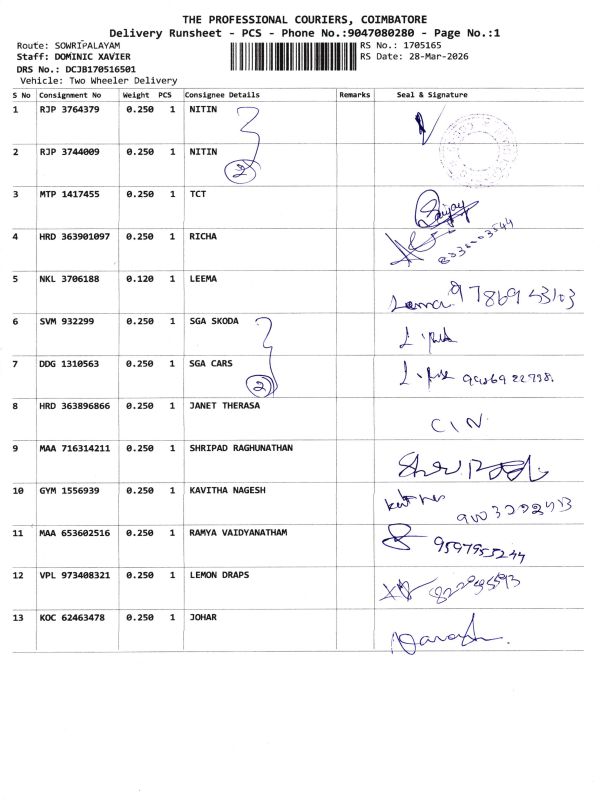 THE PROFESSIONAL COURIERS, COIMBATORE
Delivery Runsheet - PCS - Phone No.:9047080280 - Page No.:1
Route: SOWRIPALAYAM
Staff: DOMINIC XAVIER
DRS No.: DCJB170516501
Vehicle: Two Wheeler Delivery
RS No.: 1705165
RS Date: 28-Mar-2026
S No Consignment No Weight PCS Consignee Details Remarks Seal & Signature
1 RJP 3764379 0.250 1 NITIN
2 RJP 3744009 0.250 1 NITIN
2
3 MTP 1417455 0.250 1 TCT
4 HRD 363901097 0.250 1 RICHA
5 NKL 3706188 0.120 1 LEEMA
6 SVM 932299 0.250 1 SGA SKODA
7 DDG 1310563 0.250 1 SGA CARS
2
8 HRD 363896866 0.250 1 JANET THERASA
CIN
9 MAA 716314211 0.250 1 SHRIPAD RAGHUNATHAN
10 GYM 1556939 0.250 1 KAVITHA NAGESH
11 MAA 653602516 0.250 1 RAMYA VAIDYANATHAM
9597955244
12 VPL 973408321 0.250 1 LEMON DRAPS
13 KOC 62463478 0.250 1 JOHAR